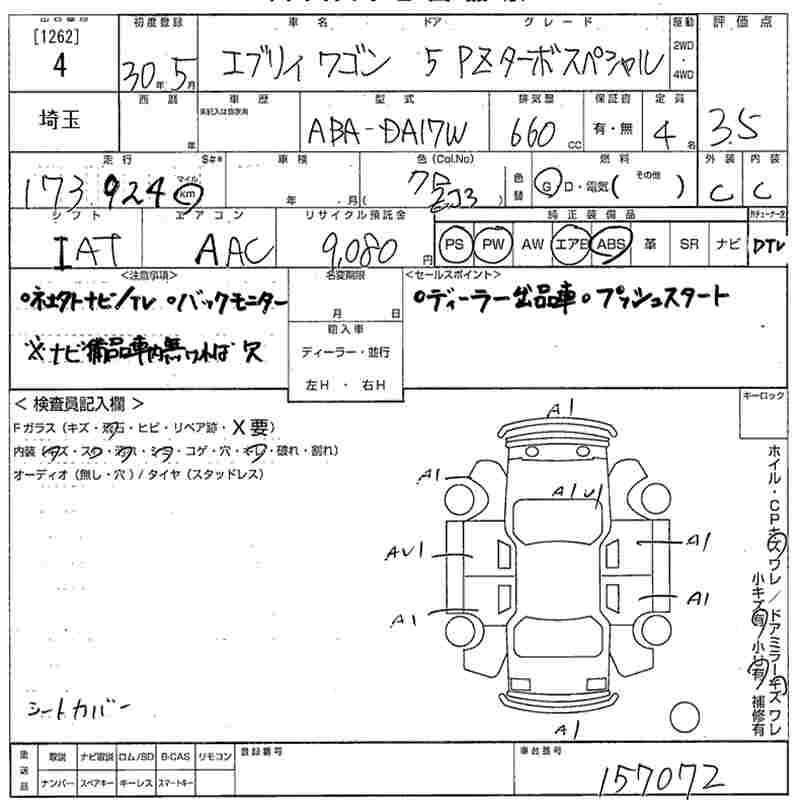 [1262]
4
初度登録
30年5月
車名 ドア グレード
エブリィ ワゴン 5 PZターボスペシャル
駆動
2WD
・
4WD
評価点
3.5
埼玉
西暦
年
車歴
未記入は自家用
型式
ABA-DA17W
排気量
660cc
保証書
有・無
定員
4名
外装 内装
C C
走行
173,924
マイル
km
車検
年 月
色(Col.No)
ZJ3
色替
燃料
G・D・電気( その他 )
シフト
IAT
エアコン
AAC
リサイクル預託金
9,080円
純正装備品
PS PW AW エアB ABS 革 SR ナビ DTV
<注意事項>
○社外ナビ/TV ○バックモニター
※ナビ備品車内無ければ欠
名変期限
月 日
輸入車
ディーラー・並行
左H・右H
<セールスポイント>
○ディーラー出品車○プッシュスタート
<検査員記入欄>
Fガラス(キズ・飛石・ヒビ・リペア跡・X要)
内装(キズ・スレ・汚れ・シミ・コゲ・穴・キレ・破れ・割れ)
オーディオ(無し・穴)/タイヤ(スタッドレス)
シートカバー
キーロック
ホイル・CPキズワレ/ドアミラーキズワレ
小キズ有/小凹有/補修有
A1
A1
A1U1
AU1
A1
A1
A1
A1
後送品
取説 ナビ取説 ロム/SD B-CAS リモコン
ナンバー スペアキー キーレス スマートキー
登録番号
車台番号
157072